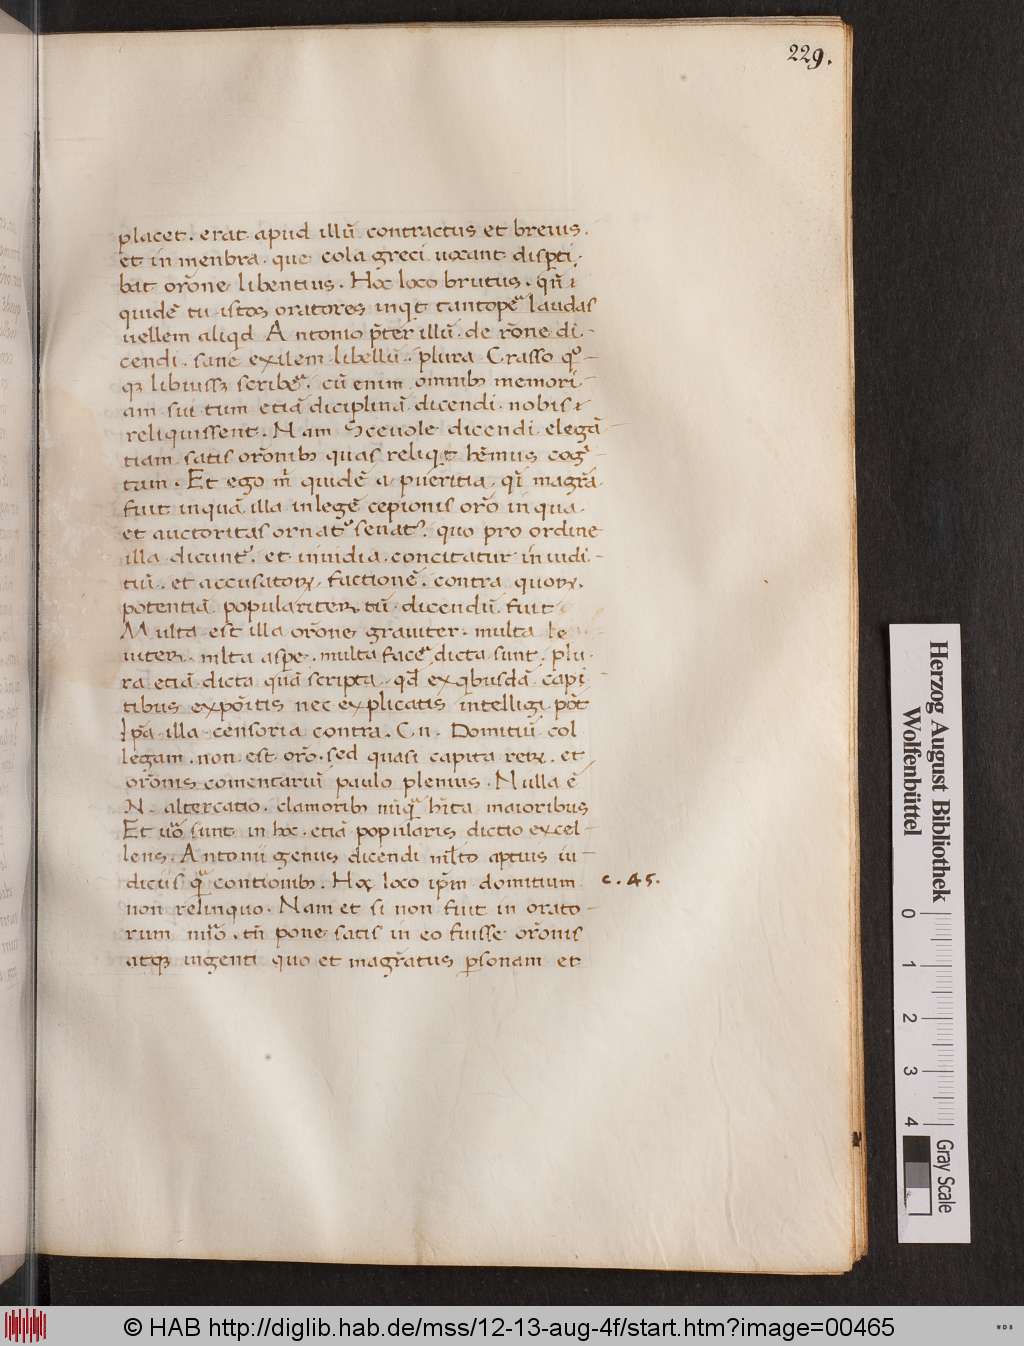 229.
placet. erat apud illũ contractus et breius.
et in menbra. que cola greci uocant disp̱ti,
bat or̃one libentius. Hoc loco brutus. qñ i
quidẽ tu istos oratores inqt tantopẽ laudas
uellem aliqd Antonio p̃ter illũ. de rõne di-
cendi. sane exilem libellũ. plura Crasso
libuissꝫ scribẽ. cũ enim omnibꝰ memori
am sui tum etiã diciplinã dicendi nobis i
reliquissent. Nam Sceuole dicendi elegã
tiam satis orõnibꝰ quas reliqt hẽmus cog̃
tam. Et ego m̃ quidẽ a pueritia. q̃ magr̃a
fuit inquã illa in legẽ cepionis orõ in qua.
et auctoritas ornatʳ senatʳ. quo pro ordine
illa dicuntʳ. et inuidia concitatur in iudi-
tiũ. et accusatoꝝ factionẽ. contra quoꝝ.
potentiã populariter tũ dicendũ fuit
Multa est illa orõne grauiter. multa le
uiter. mlta asp̱e. multa facẽ dicta sunt. plu
ra etiã dicta quã scripta. qd̃ exqbusdã capi
tibus expõitis nec explicatis intelligi põt
Ip̃a illa censoria contra. Cn. Domitiũ col
legam. non est orõ. sed quasi capita reꝝ. et
orõnis comentariũ paulo plenius. Nulla ẽ
N. altercatio. clamoribꝰ miq̃ hĩta maioribus
Et uõ sunt in hoc. etiã popularis dictio excel-
lens. Antonii genus dicendi mlto aptius iu-
diciis q̃ contionibꝰ. Hoc loco ip̃m domitium
c. 45.
non relinquo. Nam et si non fuit in orato-
rum nũo. tñ pone satis in eo fuisse orõnis
atqꝫ ingenti quo et magr̃atus p̱sonam et
Herzog August Bibliothek
Wolfenbüttel
0 1 2 3 4
Gray Scale
© HAB http://diglib.hab.de/mss/12-13-aug-4f/start.htm?image=00465